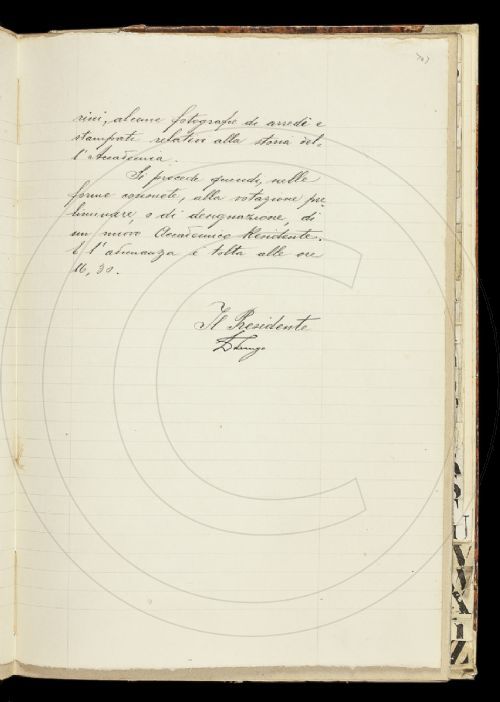 rini, alcune fotografie di arredi e
stampati relativi alla storia del-
l'Accademia.
Si procede quindi, nelle
forme consuete, alla votazione pre-
liminare, o di designazione, di
un nuovo Accademico Residente.
E l'adunanza è tolta alle ore
16,30.
Il Presidente
U
V
X
Z